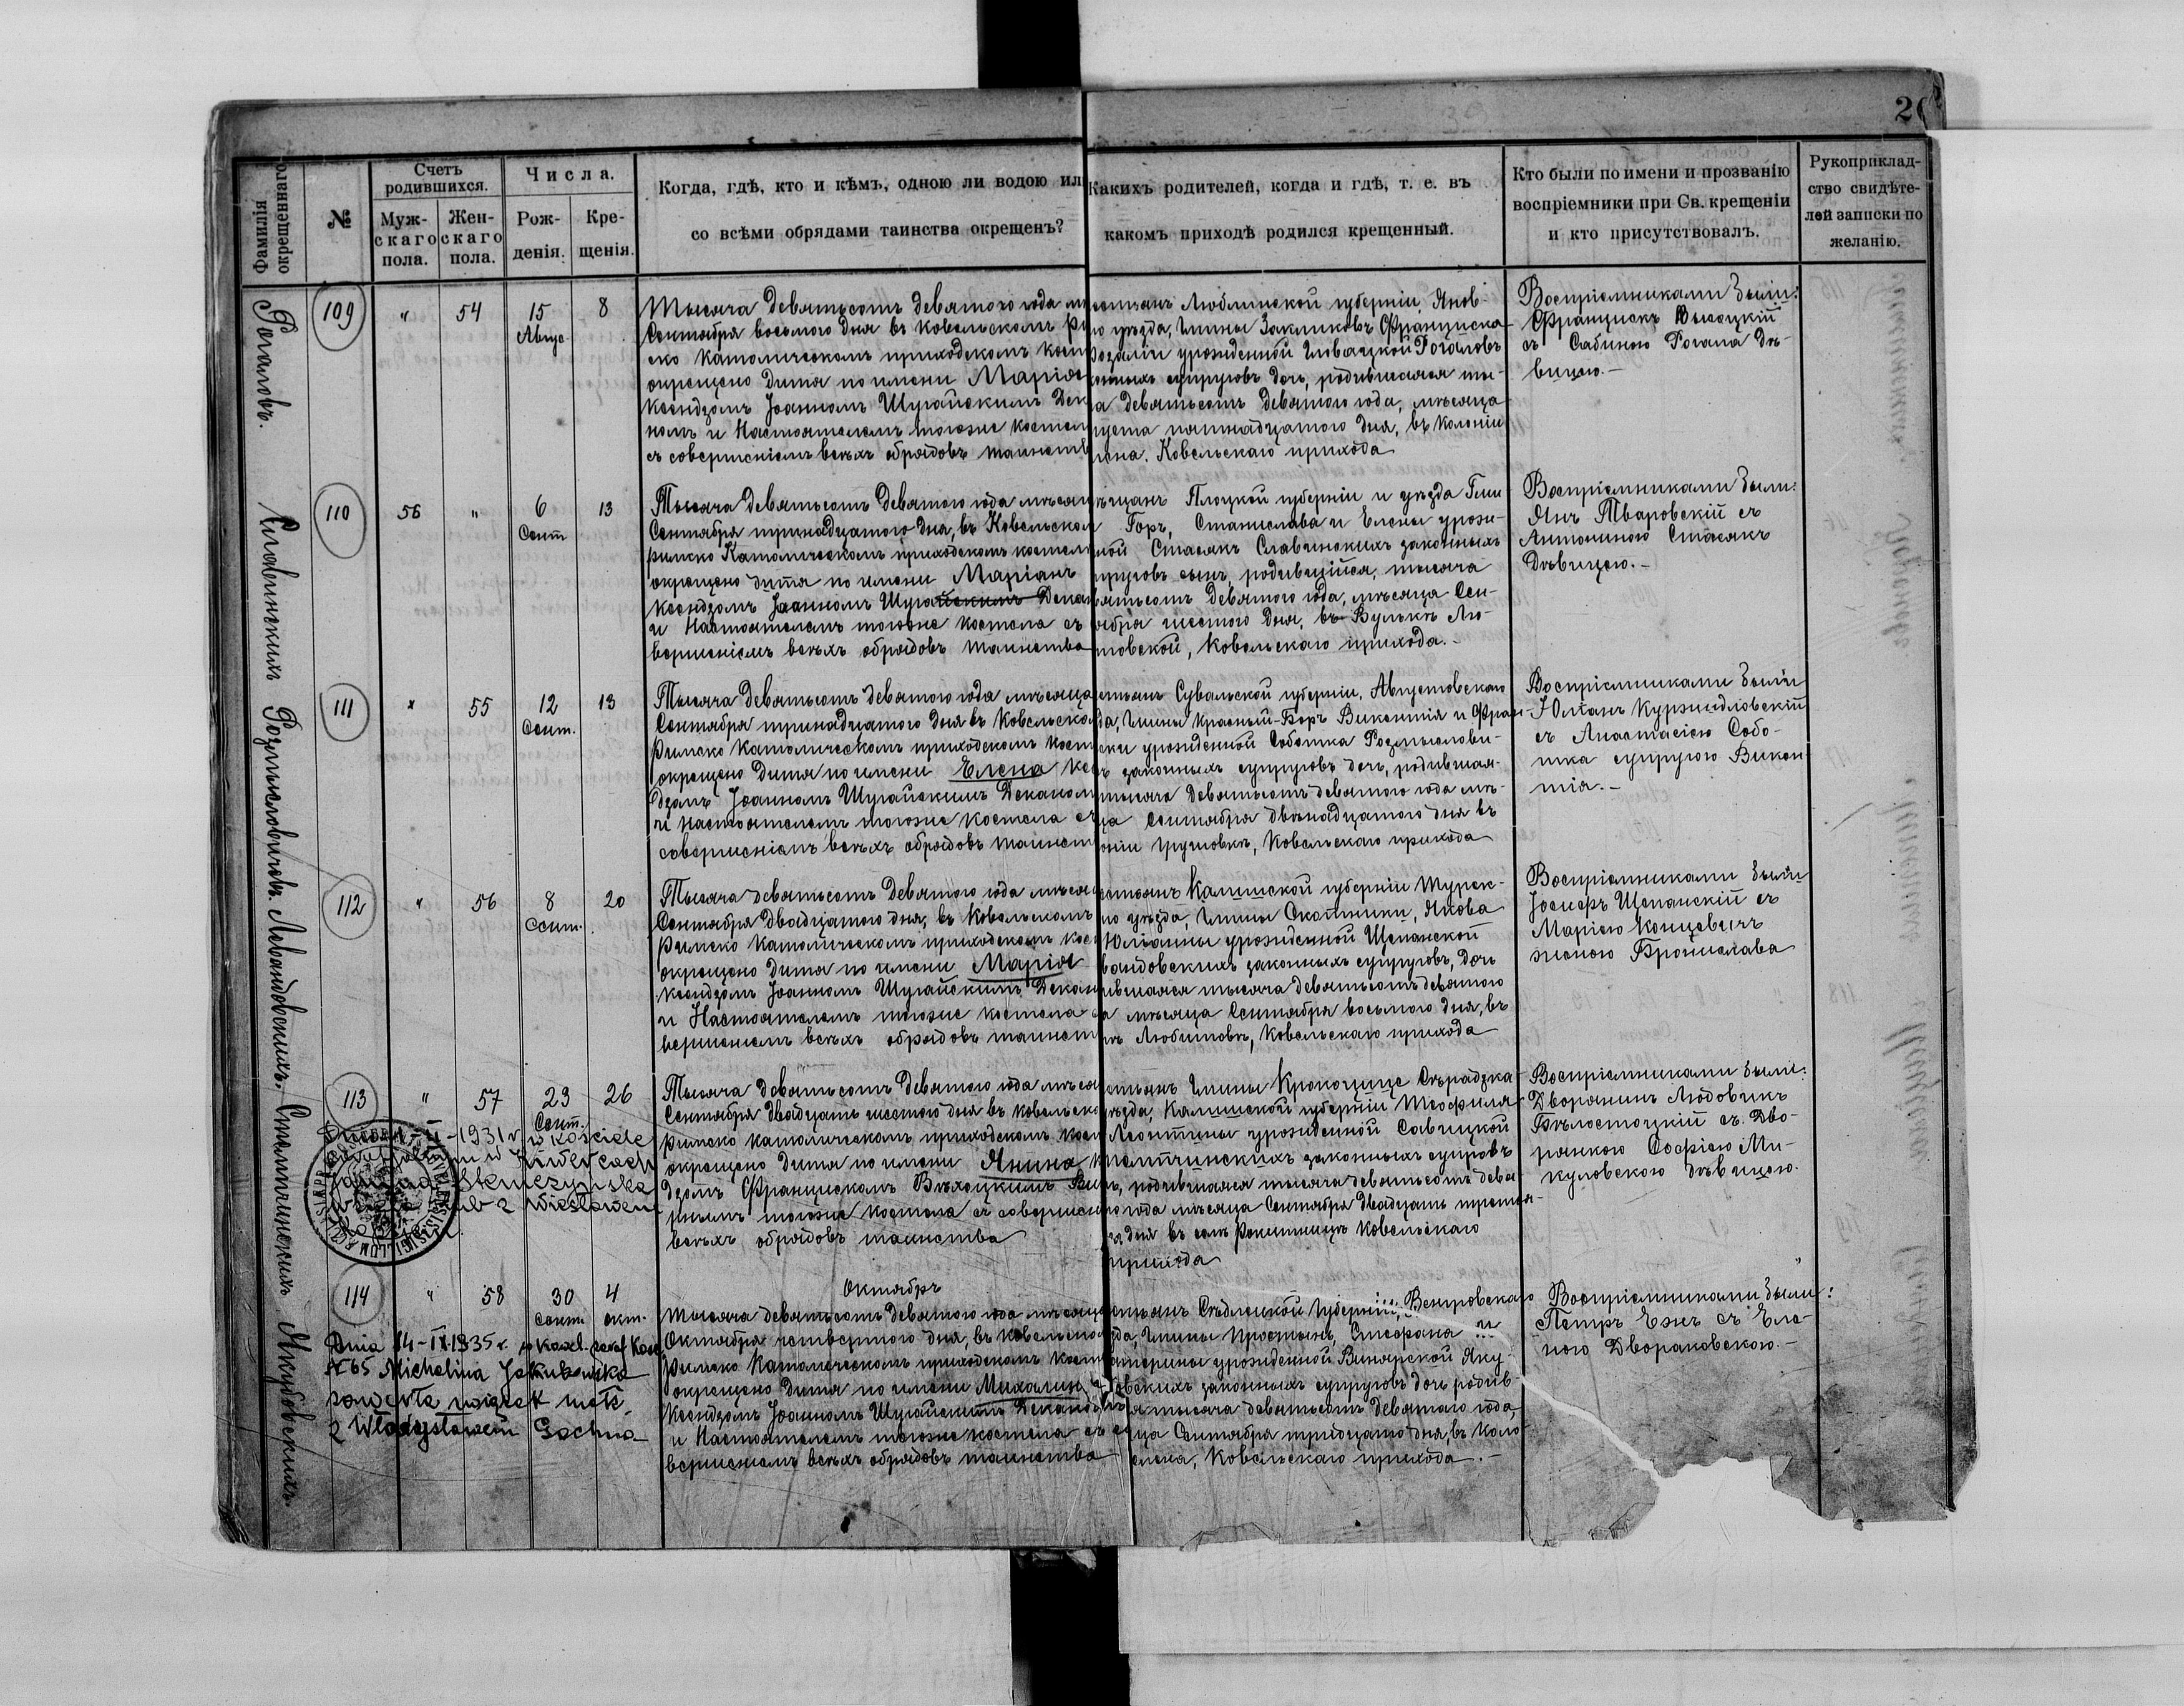 2
Фамилія окрещеннаго.
№
Счетъ родившихся.
Муж-
скаго
пола.
Жен-
скаго
пола.
Числа.
Рож-
денія.
Кре-
щенія.
Когда, гдѣ, кто и кѣмъ, одною ли водою ил
со всѣми обрядами таинства окрещенъ?
Какихъ родителей, когда и гдѣ, т. е. въ
какомъ приходѣ родился крещенный.
Кто были по имени и прозванію
воспріемники при Св. крещеніи
и кто присутствовалъ.
Рукоприклад-
ство свидѣте-
лей записки по
желанію.
Рогаловъ.
109
"
54
15
Авгус
8
Тысяча девятьсотъ девятого года
Сентября восьмого дня въ Ковельскомъ
ско католическомъ приходскомъ кост
окрещено дитя по имени Марія
Ксендзомъ Іоанномъ Шугайскимъ Дек
номъ и Настоятелемъ тогоже костел
съ совершеніемъ всѣхъ обрядовъ таинств
Люблинской губерніи, Янов-
уѣзда, гмины Закликовъ Франциска
урожденной Рогаловъ
супруговъ дочь, родившаяся ты-
а девятьсотъ девятого года, мѣсяца
густа пятнадцатого дня, въ колоніи
Ковельскаго прихода
Воспріемниками были:
Францискъ Высоцкій
съ Сабиною Рогала дѣ-
вицею.-
Славинскихъ
110
56
"
6
Сент
13
Тысяча девятьсотъ девятого года мѣсяц
Сентября тринадцатого дня, въ Ковельском
римско Католическомъ приходскомъ костел
окрещено дитя по имени Маріанъ
Ксендзомъ Іоанномъ Шугайскимъ Декан
и Настоятелемъ тогоже костела съ
вершеніемъ всѣхъ обрядовъ таинства
ѣщанъ Плоцкой губерніи и уѣзда Гми
Горъ, Станислава и Елены урож-
ной Стасякъ Славинскихъ законныхъ
пруговъ сынъ, родившійся, тысяча
вятьсотъ девятого года, мѣсяца Сен-
ября шестого дня, въ Вулькѣ Лю-
товской, Ковельскаго прихода.-
Воспріемниками были:
Янъ Тваровскій съ
Антониною Стасякъ
Дѣвицею.-
Розмысловичовъ.
111
"
55
12
Сент.
13
Тысяча девятьсотъ девятого года мѣсяца
Сентября тринадцатого дня въ Ковельско
Римско Католическомъ приходскомъ кост
окрещено дитя по имени Елена Ксе
дзомъ Іоанномъ Шугайскимъ Деканом
и настоятелемъ тогоже костела съ
совершеніемъ всѣхъ обрядовъ таинст
стьянъ Сувальской губерніи, Августовскаго
да, гмины Красный-Боръ Викентія и Фран-
ски урожденной Соботка Розмыслови-
ъ законныхъ супруговъ дочь, родившая-
тысяча девятьсотъ девятого года мѣ-
ца Сентября двѣнадцатого дня въ
оніи Грушовкѣ, Ковельскаго прихода
Воспріемниками были
Юліанъ Куржидловскій
съ Анастасіею Собо-
тка супругою Викен
тія.-
Левандовскихъ.
112
"
56
8
Сент.
20
Тысяча девятьсотъ девятого года мѣсяц
Сентября двадцатого дня, въ Ковельскомъ
Римско Католическомъ приходскомъ кос
окрещено дитя по имени Марія
Ксендзомъ Іоанномъ Шугайскимъ Декан
и Настоятелемъ тогоже костела
вершеніемъ всѣхъ обрядовъ таинст
естьянъ Калишской губерніи Турек-
го уѣзда, гмины Скотники, Якова
Юліанны урожденной Щепанской
вандовскихъ законныхъ супруговъ, дочь
ившаяся тысяча девятьсотъ девятого
а мѣсяца Сентября восьмого дня, въ
Любитовѣ, Ковельскаго прихода
Воспріемниками были
Іосифъ Щепанскій съ
Маріею Концевичъ
женою Бронислава
113
"
57
23
Сент.
26
1931 r. w Kościele
Kiwercach
Skulczyńska
z Wiesławem
Тысяча девятьсотъ девятого года мѣсяц
Сентября двадцать шестого дня въ Ковельско
Римско католическомъ приходскомъ кост
окрещено дитя по имени Янина К
дзомъ Францискомъ Ви
рнымъ тогоже костела съ совершені
всѣхъ обрядовъ таинства
естьянъ гмины Крокочице Сѣрадзка-
ѣзда, Калишской губерніи Теофиля
Леонтины урожденной Савицкой
законныхъ супруговъ
ь, родившаяся тысяча девятьсотъ девя-
го года мѣсяца Сентября двадцать третья-
го дня въ селѣ Ковельскаго
прихода
Воспріемниками были:
Дворянинъ Людовикъ
Бѣлостоцкій съ Дво-
рянкою Софіею Ми-
куловскою дѣвицею.
Якубовскихъ
114
"
58
30
Сент.
4
окт.
Dnia 14-IX 1935 r.
№ 65 Michalina Jakubowska
zawarła związek małż.
z Władysławem Gochna
Октябрь
Тысяча девятьсотъ девятого года мѣсяца
Октября четвертого дня, въ Ковельско
Римско Католическомъ приходскомъ кост
окрещено дитя по имени Михалина
Ксендзомъ Іоанномъ Шугайскимъ Деканомъ
и Настоятелемъ тогоже костела съ со
вершеніемъ всѣхъ обрядовъ таинства
естьянъ Сѣдлецкой губерніи, Венгровскаго
да, гмины Простынь, Стефана и
атерины урожденной Винярской Яку-
бовскихъ законныхъ супруговъ дочь родив-
ся тысяча девятьсотъ девятого года,
яца Сентября тридцатого дня, въ Коло
Ковельскаго прихода.-
Воспріемниками были:
Петръ Енъ съ Еле-
ною Двораковскою.-